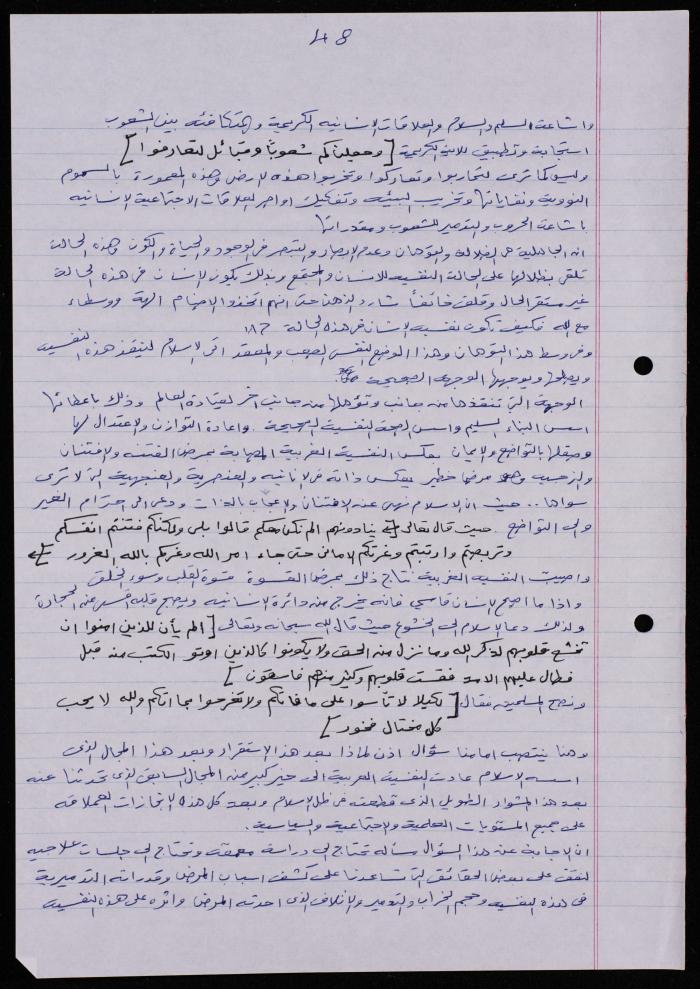 48
واشاعت السلم والسلام والعلاقات الانسانيه الكريمية والمتكافئه بين الشعوب
استجابة وتطبيق للاية الكريمة [وجعلناكم شعوباً وقبائل لتعارفوا]
وليس كما ترى لتحاربوا وتعاركوا وتخربوا هذه الارض وهذه المعمورة بالسموم
النووية ونفاياتها وتخريب البيئه وتفكيك اواصر العلاقات الاجتماعية الانسانيه
باشاعت الحروب والتدمير للشعوب ومقدراتها
انه الجاهلية هي الضلاله والتوهان وعدم الابصار والتبصر في الوجود والحياة والكون وهذه الحالة
تلقي بظلالها على الحالت النفسيه للانسان والمجتمع وبذلك يكون الانسان في هذه الحالة
غير مستقر الحال وقلق خائفاً شارد الذهن حتى انهم اتخذوا الاصنام الهة ووسطاء
مع الله فكيف تكون نفسيه الانسان في هذه الحالة
وفي وسط هذا التوهان وهذا الوضع النفسي الصعب والمعقد اتى الاسلام لينقذ هذه النفسيه
ويصلحها ويوجهها الوجهه الصحيحة
الوجهة التي تنقذها من جانب وتؤهلها من جانب اخر لقيادة العالم وذلك باعطائها
اسس البناء السليم واسس الصحة النفسية الصحيحة واعادة التوازن والاعتدال لها
وصقلها بالتواضع والايمان بعكس النفسية الغربية المصابة بمرض الفتنه والافتنان
والنرجسيه وهو مرض خطير يعكس ذاته في الانانيه والعنصرية والعنجهية التي لا ترى
سواها .. حيث ان الاسلام نهى عن الافتنان والاعجاب بالذات ودعى الى احترام الغير
والى التواضع . حيث قال تعالى [ينادونهم الم نكن معكم قالوا بلى ولكنكم فتنتم انفسكم
وتربصتم وارتبتم وغرتكم الاماني حتى جاء امر الله وغركم بالله الغرور]
واصيبت النفسيه الغربية نتاج ذلك بمرض القسوة قسوة القلب وسوء الخلق
واذا ما اصبح الانسان قاسي فانه يخرج من دائرة الانسانيه ويصبح قلبه اقسى من الحجارة
ولذلك دعا الاسلام الى الخشوع حيث قال الله سبحانه وتعالى [الم يأن للذين امنوا ان
تخشع قلوبهم لذكر الله وما نزل من الحق ولا يكونوا كالذين اوتو الكتب من قبل
فطال عليهم الامد فقست قلوبهم وكثير منهم فاسقون]
ونصح المسلمين فقال [لكيلا لا تأسوا على ما فاتكم ولا تفرحوا بما اتاكم والله لا يحب
كل مختال فخور]
وهنا ينتصب امامنا سؤال اذن لماذا بعد هذا الاستقرار وبعد هذا المجال الذي
اسسه الاسلام عادت النفسية العربية الى حيز كبير من المجال السابق الذي تحدثنا عنه
بعد هذا المشوار الطويل الذي قطعته في ظل الاسلام وبعد كل هذه الانجازات العملاقه
على جميع المستويات العلمية والاجتماعية والسياسية.
ان الاجابة عن هذا السؤال مسأله تحتاج الى دراسة معمقه وتحتاج الى جلسات علاجيه
لنقف على بعض الحقائق التي تساعدنا على كشف اسباب المرض وقدراته التدميرية
في هذه النفسيه وحجم الخراب والتدمير والاتلاف الذي احدثه المرض واثره على هذه النفسيه